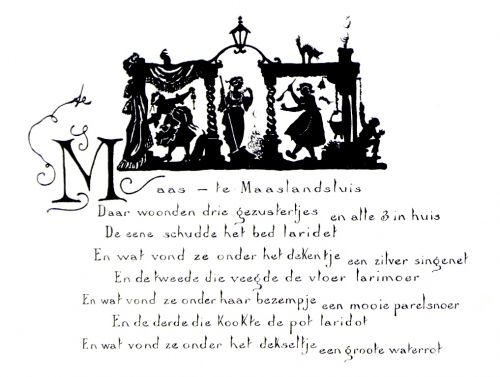 te
Maas – te Maaslandsluis
Daar woonden drie gezustertjes en alle 3 in huis
De eene schudde het bed laridet
En wat vond ze onder het dekentje een zilver singenet
En de tweede die veegde de vloer larimoer
En wat vond ze onder haar bezempje een mooie parelsnoer
En de derde die kookte de pot laridot
En wat vond ze onder het dekseltje een groote waterrot